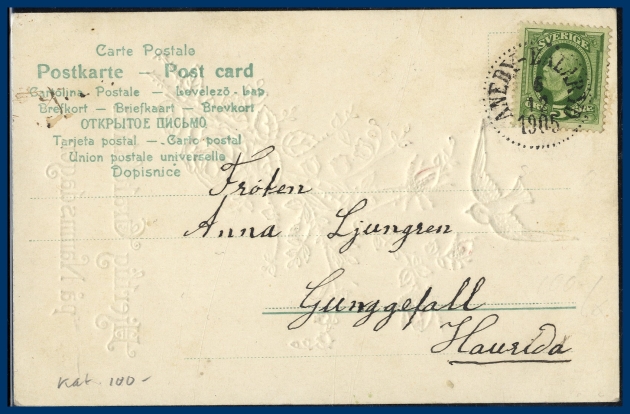 Carte Postale
Postkarte — Post card
Cartolina Postale — Levelező-Lap
Brefkort — Briefkaart — Brevkort
ОТКРЫТОЕ ПИСЬМО
Tarjeta postal — Carte postal
Union postale universelle
Dopisnice
SVERIGE
1905
Fröken
Anna Ljungren
Gunggefall
Haurida
Kat. 100-